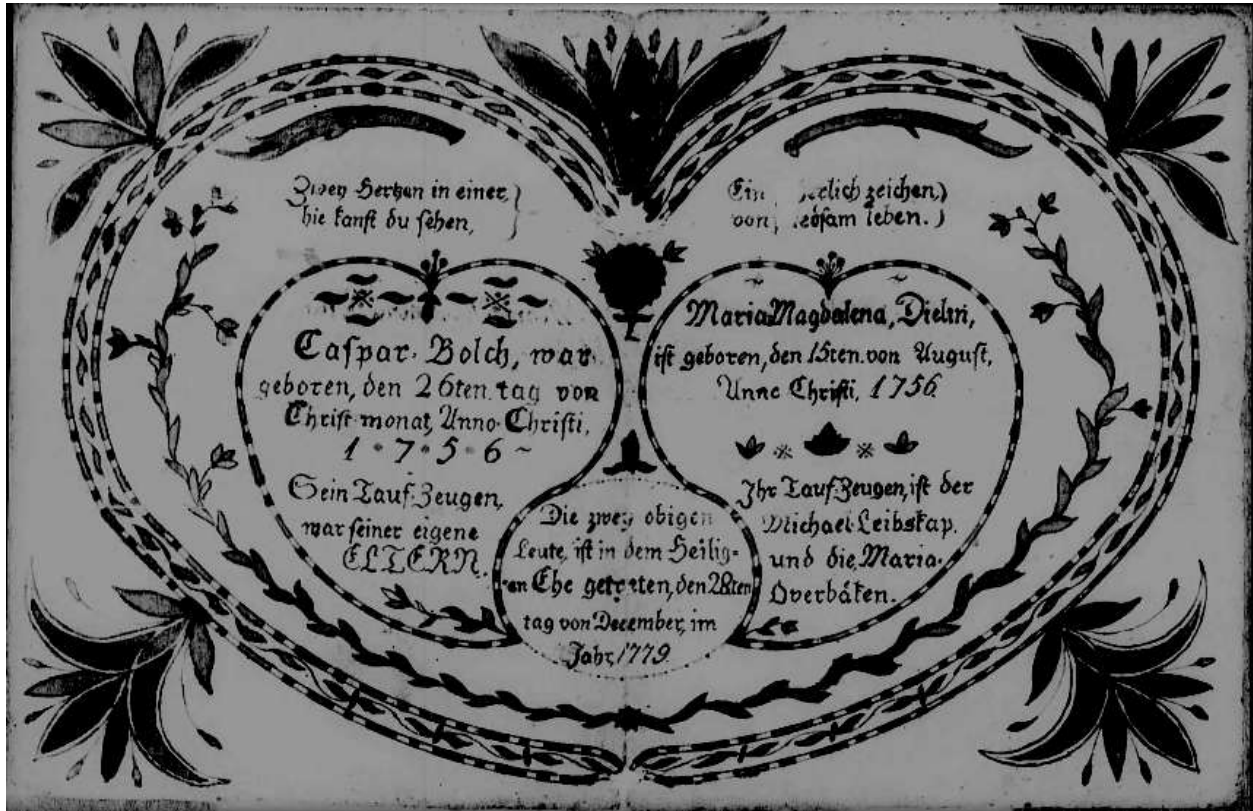 Zwey Hertzen in einer,
hie kanst du sehen,
Ein zeichen,
von leben.
Caspar Bolch, war
geboren, den 26ten tag von
Christ-monat, Anno Christi,
1 7 5 6 ~
Sein Tauf-Zeugen,
war seiner eigene
ELTERN.
Maria Magdalena, Dielin,
ist geboren, den 15ten von August,
Anno Christi, 1756
Ihr Tauf-Zeugen, ist der
Michael Leibskap,
und die Maria
Overbäken.
Die zwey obigen
Leute, ist in dem Heilig-
en Ehe getreten, den 28ten
tag von December, im
Jahr, 1779.